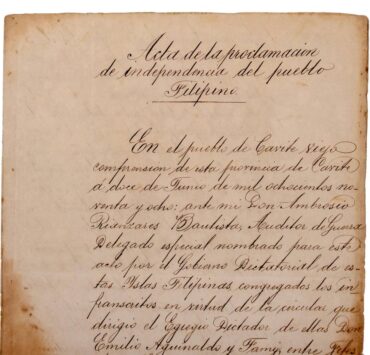 Acta de la proclamacion
de independencia del pueblo
Filipino
En el pueblo de Cavite viejo
comprension de esta provincia de Cavite
á doce de Junio de mil ochocientos no-
venta y ocho: ante mi Don Ambrosio
Rianzares Bautista, Auditor de Guerra
Delegado especial nombrado para este
acto por el Gobierno Dictatorial de es-
tas Yslas Filipinas congregados los in-
franscritos en virtud de la circular que
dirigio el Egregio Dictador de ellas Don
Emilio Aguinaldo y Famy, entre